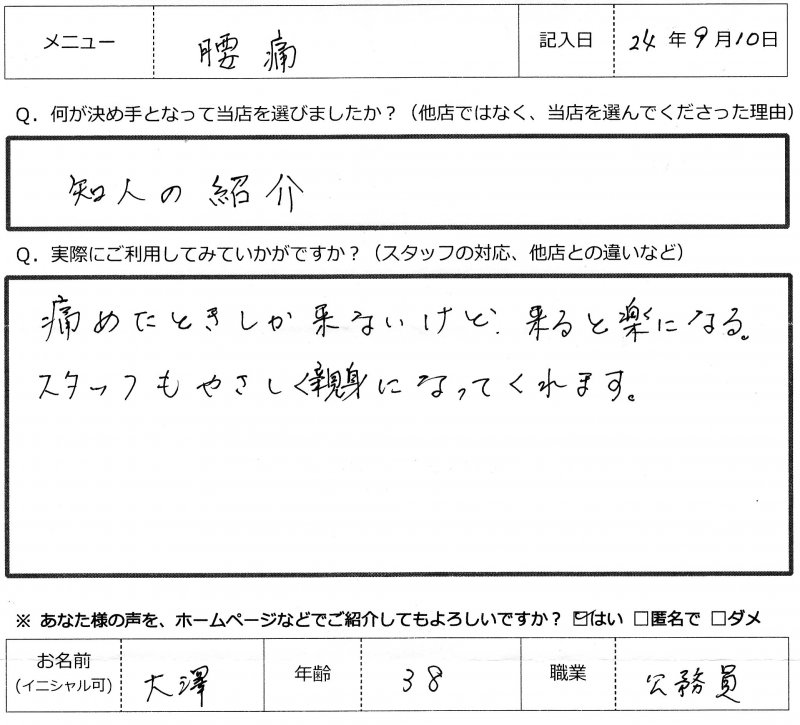 メニュー 腰痛 記入日 24年9月10日
Q．何が決め手となって当店を選びましたか？（他店ではなく、当店を選んでくださった理由）
知人の紹介
Q．実際にご利用してみていかがですか？（スタッフの対応、他店との違いなど）
痛めたときしか来ないけど、来ると楽になる。
スタッフもやさしく親身になってくれます。
※ あなた様の声を、ホームページなどでご紹介してもよろしいですか？ ☑はい □匿名で □ダメ
お名前 大澤 年齢 38 職業 公務員
(イニシャル可)